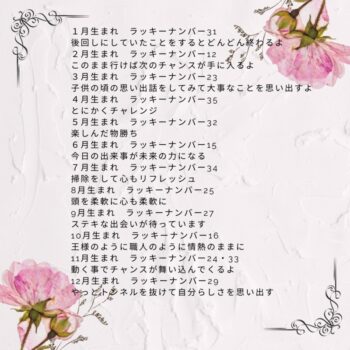 1月生まれ　ラッキーナンバー31
後回しにしていたことをするとどんどん終わるよ
2月生まれ　ラッキーナンバー12
このまま行けば次のチャンスが手に入るよ
3月生まれ　ラッキーナンバー23
子供の頃の思い出話をしてみて大事なことを思い出すよ
4月生まれ　ラッキーナンバー35
とにかくチャレンジ
5月生まれ　ラッキーナンバー32
楽しんだ物勝ち
6月生まれ　ラッキーナンバー15
今日の出来事が未来の力になる
7月生まれ　ラッキーナンバー34
掃除をして心もリフレッシュ
8月生まれ　ラッキーナンバー25
頭を柔軟に心も柔軟に
9月生まれ　ラッキーナンバー27
ステキな出会いが待っています
10月生まれ　ラッキーナンバー16
王様のように職人のように情熱のままに
11月生まれ　ラッキーナンバー24・33
動く事でチャンスが舞い込んでくるよ
12月生まれ　ラッキーナンバー29
やっとトンネルを抜けて自分らしさを思い出す